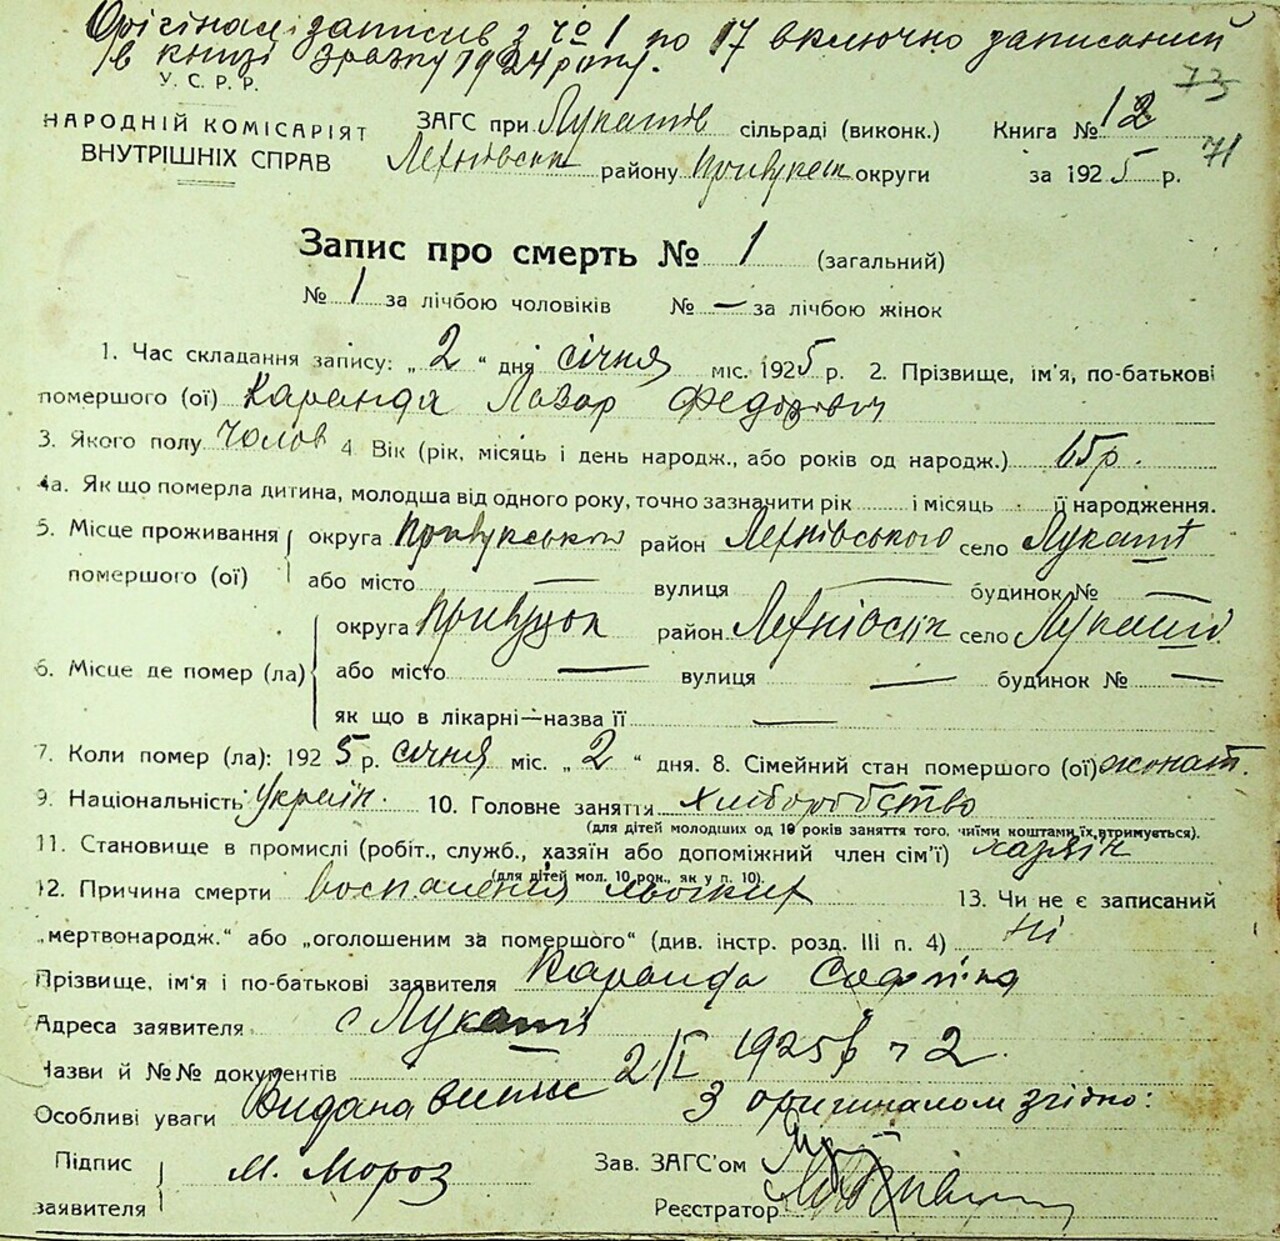 Орігінал записив з № 1 по 17 включно записаний
в книзі зразку 1924 року.
73
У. С. Р. Р.
НАРОДНІЙ КОМІСАРІЯТ
ВНУТРІШНІХ СПРАВ
ЗАГС при Лукашів сільраді (виконк.) Книга № 12
71
району округи за 1925 р.
Запис про смерть № 1 (загальний)
№ 1 за лічбою чоловіків № — за лічбою жінок
1. Час складання запису: „ 2 “ дня січня міс. 1925 р. 2. Прізвище, ім'я, по-батькові
помершого (ої) Каранда Лазар Федорович
3. Якого полу Чолов 4 Вік (рік, місяць і день народж., або років од народж.) 65 р.
4а. Як що померла дитина, молодша від одного року, точно зазначити рік і місяць її народження.
5. Місце проживання округа район село
помершого (ої) або місто — вулиця — будинок № —
округа район село
6. Місце де помер (ла) або місто — вулиця — будинок № —
як що в лікарні—назва її —
7. Коли помер (ла): 1925 р. січня міс. „ 2 “ дня. 8. Сімейний стан помершого (ої) жонат.
9. Національність Україн. 10. Головне заняття хліборобство
(для дітей молодших од 10 років заняття того, чиїми коштами їх втримується).
11. Становище в промислі (робіт., служб., хазяїн або допоміжний член сім'ї) хазяїн
(для дітей мол. 10 рок., як у п. 10).
12. Причина смерти воспаления льогких 13. Чи не є записаний
„мертвонародж.“ або „оголошеним за помершого“ (див. інстр. розд. III п. 4) Ні
Прізвище, ім'я і по-батькові заявителя Каранда
Адреса заявителя с
Назви й №№ документів
Особливі уваги Видана випис 2/I 1925 р ч 2. З оригиналом згідно:
Підпис
заявителя М. Мороз
Зав. ЗАГС'ом
Реєстратор